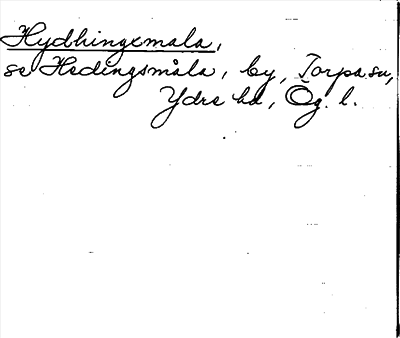 Hydhingxmala,
se Hedingsmåla, by, Torpa sn,
Ydre hd, Ög. l.